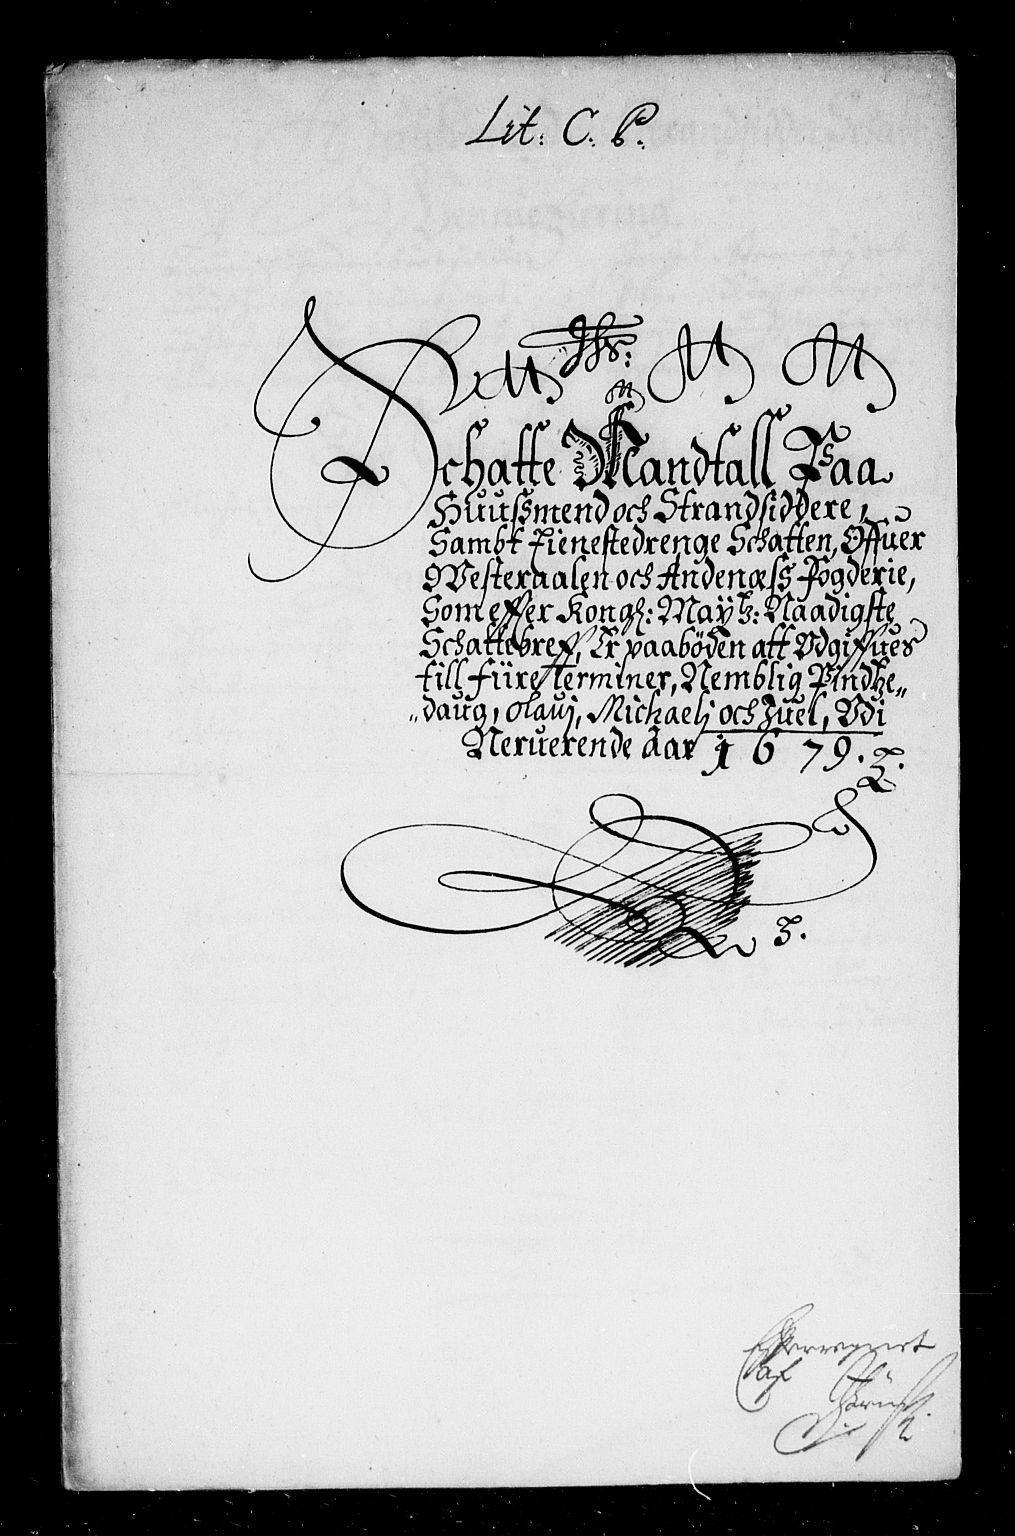 Lit: C. B.
Ihs:
Schatte Mandtall Paa
Huussmend och Strandsiddere,
Sambt Tienestedrenge Schatten, Offuer
Westeraalen och Andenæss Fogderie,
Som effter Kongl: Maÿtz: Naadigste
Schattebreff, Er paaböden att Udgiffues
till fiire Terminer, Nemblig Pindtze„
„daug, Olauj, Michaelj och Juel, Udi
Neruerende Aar 1679.
Effterregnet
af